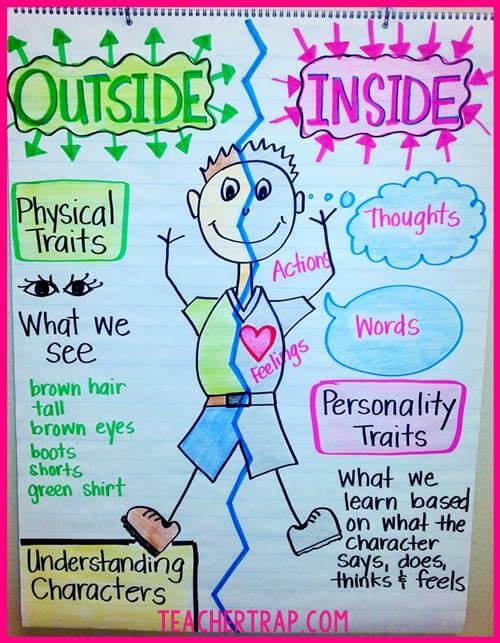 OUTSIDE
INSIDE
Physical
Traits
What we
see
brown hair
tall
brown eyes
boots
shorts
green shirt
Understanding
Characters
Thoughts
Actions
Words
Feelings
Personality
Traits
What we
learn based
on what the
character
says, does,
thinks & feels
TEACHERTRAP.COM